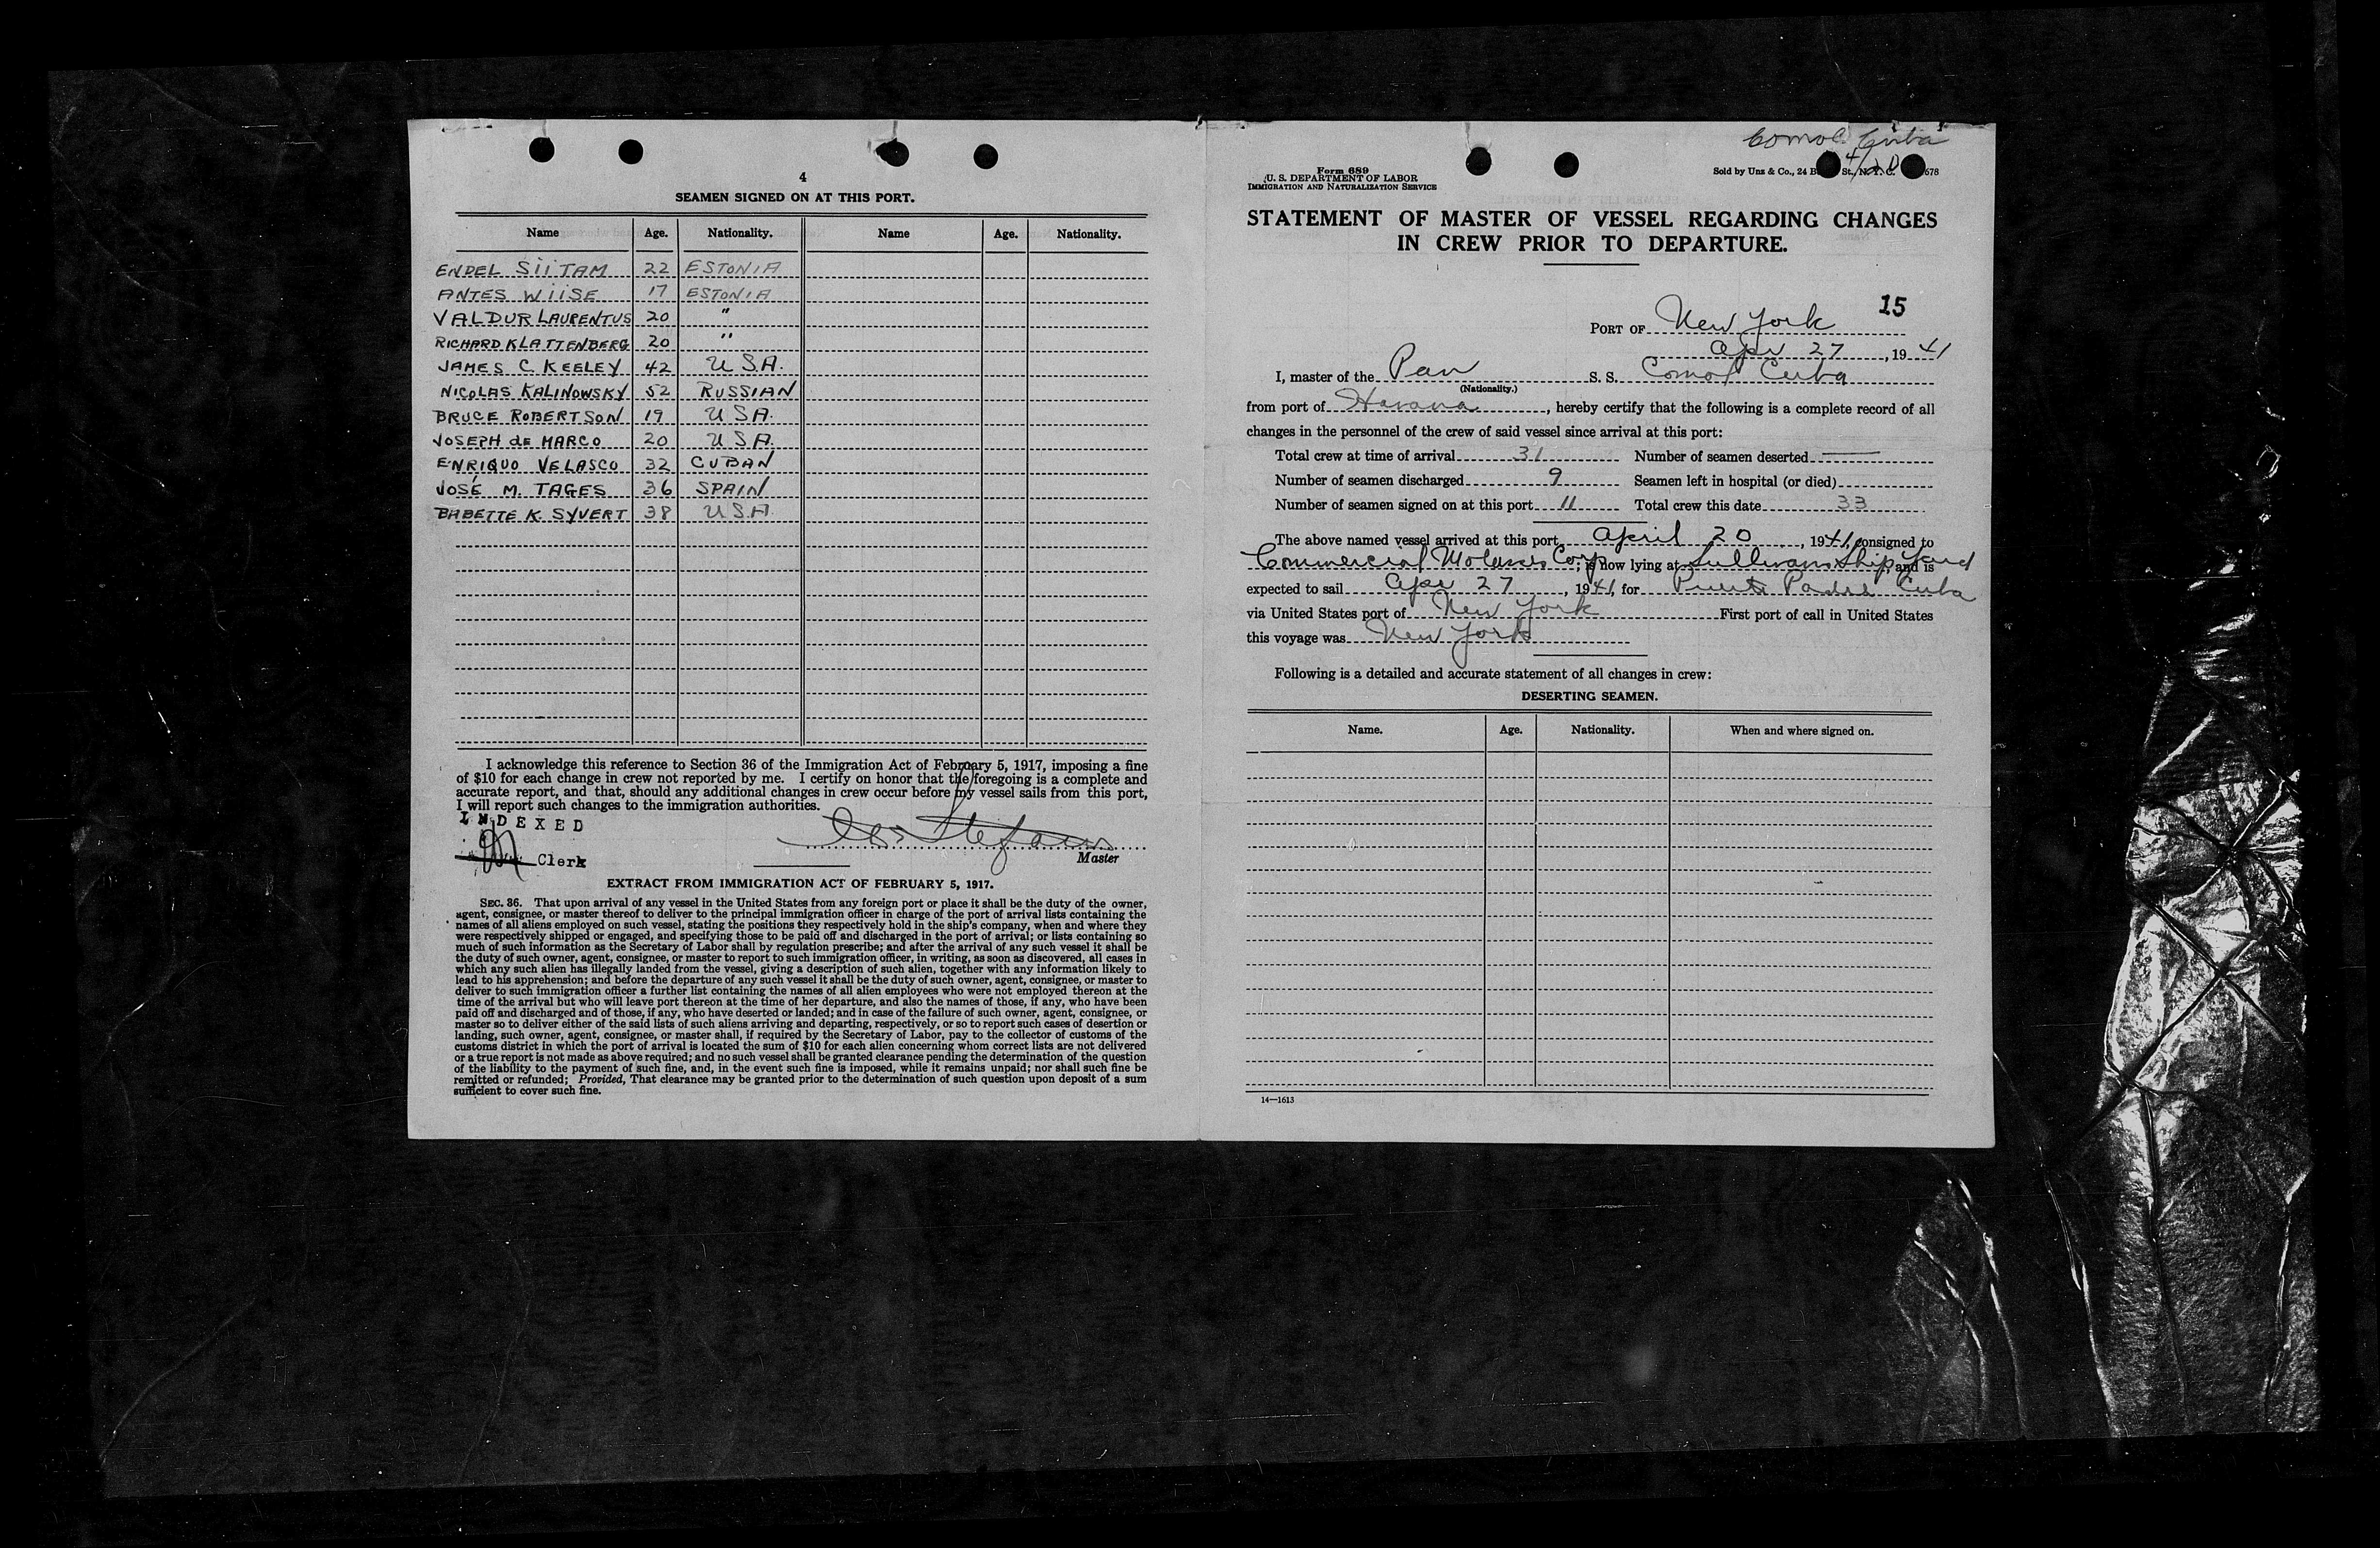 4
SEAMEN SIGNED ON AT THIS PORT.
Name Age. Nationality. Name Age. Nationality.
ENDEL SIITAM 22 ESTONIA
ANTES WIISE 17 ESTONIA
VALDUR LAURENTUS 20 "
RICHARD KLATTENBERG 20 "
JAMES C KEELEY 42 U.S.A.
NICOLAS KALINOWSKY 52 RUSSIAN
BRUCE ROBERTSON 19 U S A.
JOSEPH de MARCO 20 U S A.
ENRIQUO VELASCO 32 CUBAN
JOSÉ M. TAGES 36 SPAIN
BABETTE K. SYVERT 38 U S A.
I acknowledge this reference to Section 36 of the Immigration Act of February 5, 1917, imposing a fine
of $10 for each change in crew not reported by me. I certify on honor that the foregoing is a complete and
accurate report, and that, should any additional changes in crew occur before my vessel sails from this port,
I will report such changes to the immigration authorities.
INDEXED
Clerk
Master
EXTRACT FROM IMMIGRATION ACT OF FEBRUARY 5, 1917.
SEC. 36. That upon arrival of any vessel in the United States from any foreign port or place it shall be the duty of the owner,
agent, consignee, or master thereof to deliver to the principal immigration officer in charge of the port of arrival lists containing the
names of all aliens employed on such vessel, stating the positions they respectively hold in the ship's company, when and where they
were respectively shipped or engaged, and specifying those to be paid off and discharged in the port of arrival; or lists containing so
much of such information as the Secretary of Labor shall by regulation prescribe; and after the arrival of any such vessel it shall be
the duty of such owner, agent, consignee, or master to report to such immigration officer, in writing, as soon as discovered, all cases in
which any such alien has illegally landed from the vessel, giving a description of such alien, together with any information likely to
lead to his apprehension; and before the departure of any such vessel it shall be the duty of such owner, agent, consignee, or master to
deliver to such immigration officer a further list containing the names of all alien employees who were not employed thereon at the
time of the arrival but who will leave port thereon at the time of her departure, and also the names of those, if any, who have been
paid off and discharged and of those, if any, who have deserted or landed; and in case of the failure of such owner, agent, consignee, or
master so to deliver either of the said lists of such aliens arriving and departing, respectively, or so to report such cases of desertion or
landing, such owner, agent, consignee, or master shall, if required by the Secretary of Labor, pay to the collector of customs of the
customs district in which the port of arrival is located the sum of $10 for each alien concerning whom correct lists are not delivered
or a true report is not made as above required; and no such vessel shall be granted clearance pending the determination of the question
of the liability to the payment of such fine, and, in the event such fine is imposed, while it remains unpaid; nor shall such fine be
remitted or refunded; Provided, That clearance may be granted prior to the determination of such question upon deposit of a sum
sufficient to cover such fine.
Comol Cuba
4/20
Form 689
U. S. DEPARTMENT OF LABOR
IMMIGRATION AND NATURALIZATION SERVICE
Sold by Unz & Co., 24 B St., N. Y. C. 678
STATEMENT OF MASTER OF VESSEL REGARDING CHANGES
IN CREW PRIOR TO DEPARTURE.
15
PORT OF New York
Apr 27, 1941
I, master of the Pan S. S. Comol Cuba
(Nationality.)
from port of Havana, hereby certify that the following is a complete record of all
changes in the personnel of the crew of said vessel since arrival at this port:
Total crew at time of arrival 31 Number of seamen deserted —
Number of seamen discharged 9 Seamen left in hospital (or died)
Number of seamen signed on at this port 11 Total crew this date 33
The above named vessel arrived at this port April 20, 1941, consigned to
Commercial Molasses Corp; is now lying at Sullivans Ship Yard and is
expected to sail Apr 27, 1941, for Puerto Padre Cuba
via United States port of New York First port of call in United States
this voyage was New York
Following is a detailed and accurate statement of all changes in crew:
DESERTING SEAMEN.
Name. Age. Nationality. When and where signed on.
14—1613